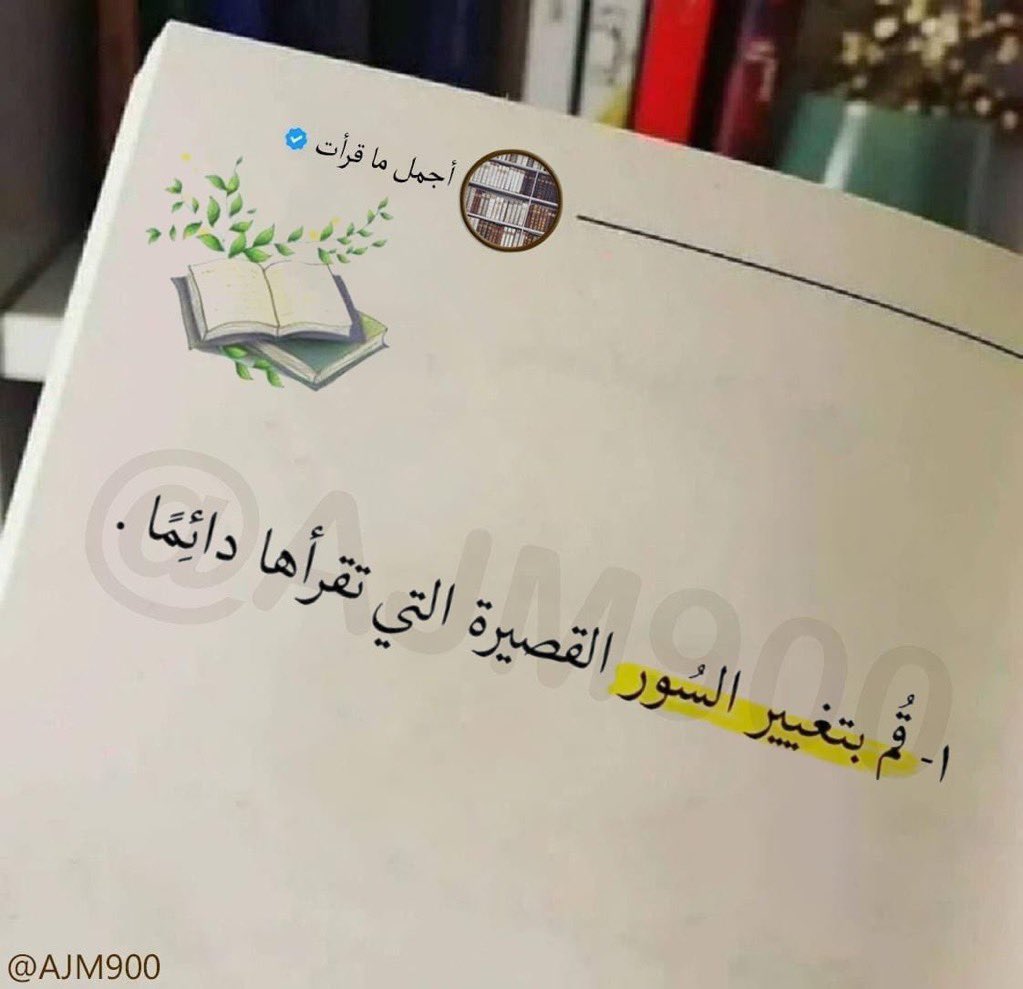 أجمل ما قرأت
١- قُم بتغيير السُور القصيرة التي تقرأها دائِمًا .
@AJM900
@AJM900